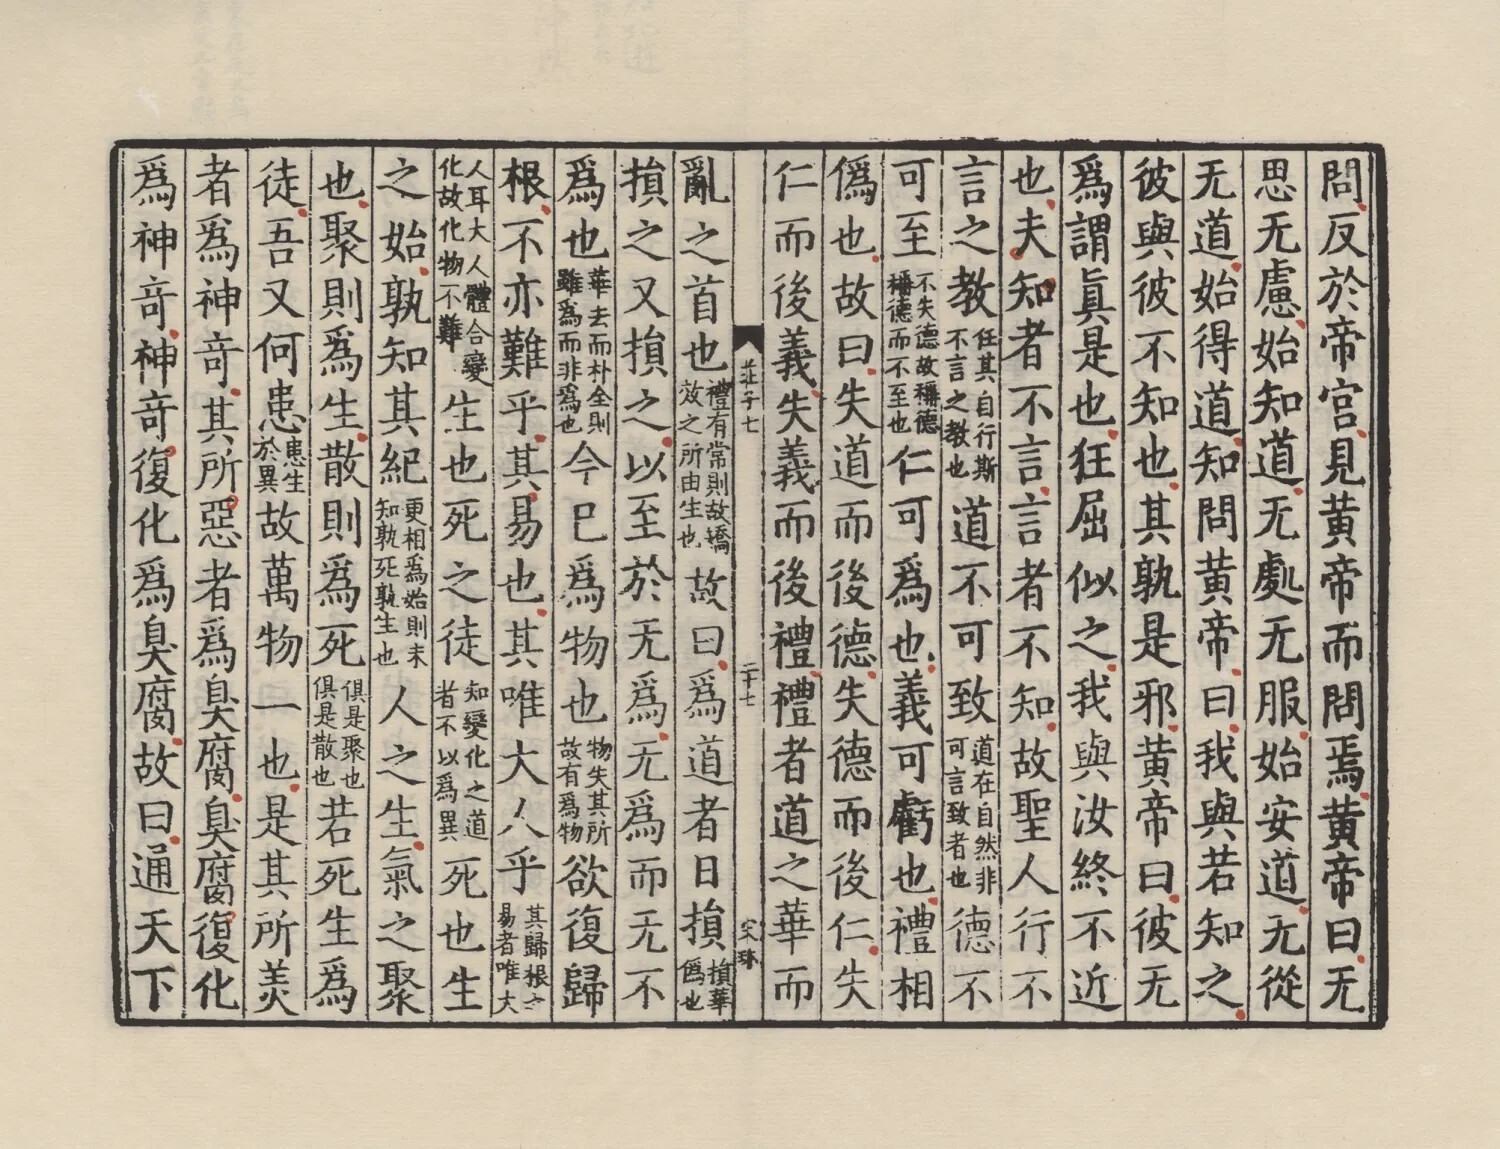 問反於帝宫見黄帝而問焉黄帝曰无
思无慮始知道无處无服始安道无從
无道始得道知問黄帝曰我與若知之
彼與彼不知也其孰是邪黄帝曰彼无
爲謂眞是也狂屈似之我與汝終不近
也夫知者不言言者不知故聖人行不
言之教任其自行斯不言之教也道不可致道在自然非可言致者也德不
可至不失德故稱德稱德而不至也仁可爲也義可虧也禮相
僞也故曰失道而後德失德而後仁失
仁而後義失義而後禮禮者道之華而
莊子七 二十七 宋琳
亂之首也禮有常則故矯效之所由生也故曰爲道者日損損華僞也
損之又損之以至於无爲无爲而无不
爲也華去而朴全則雖爲而非爲也今已爲物也物失其所故有爲物欲復歸
根不亦難乎其易也其唯大人乎其歸根之易者唯大
人耳大人體合變化故化物不難生也死之徒知變化之道者不以爲異死也生
之始孰知其紀更相爲始則未知孰死孰生也人之生氣之聚
也聚則爲生散則爲死俱是聚也俱是散也若死生爲
徒吾又何患患生於異故萬物一也是其所美
者爲神奇其所惡者爲臭腐臭腐復化
爲神奇神奇復化爲臭腐故曰通天下